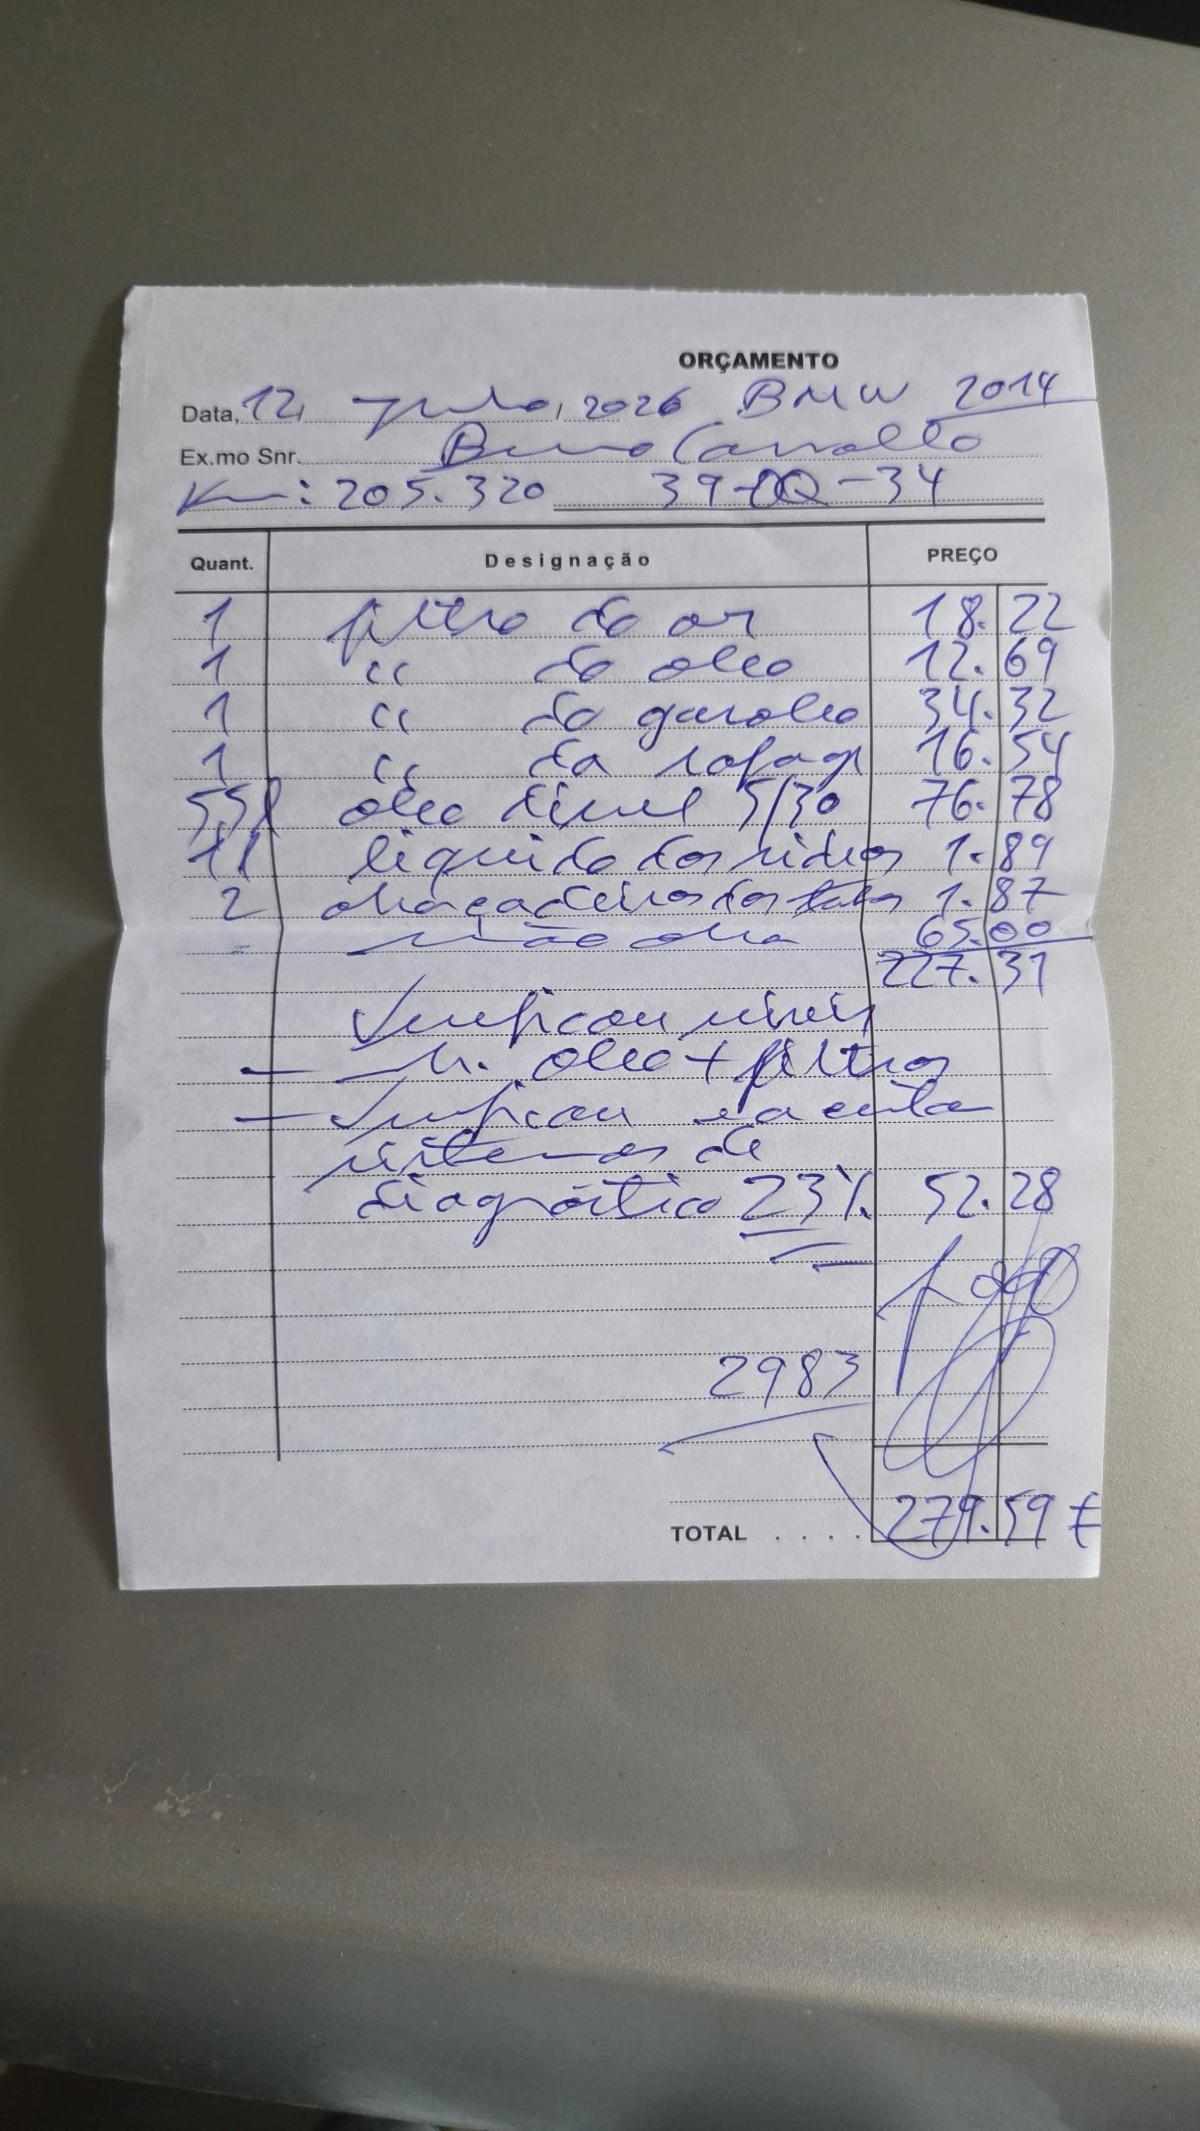 ORÇAMENTO
Data, 12, Julho, 2026 BMW 2014
Ex.mo Snr. Bruno Carvalho
Km: 205.320 39-OQ-34
Quant. Designação PREÇO
1 filtro do ar 18.22
1 " do oleo 12.69
1 " do gasoleo 34.32
1 " da 16.54
5,5l oleo diesel 5/30 76.78
1l liquido dos vidros 1.89
2 abraçadeiras dos 1.87
mão obra 65.00
227.31
Verificou niveis
- M. oleo + filtros
- Verificou
sistemas de
diagnóstico 23% 52.28
Pago
2983
TOTAL .... 279.59 €